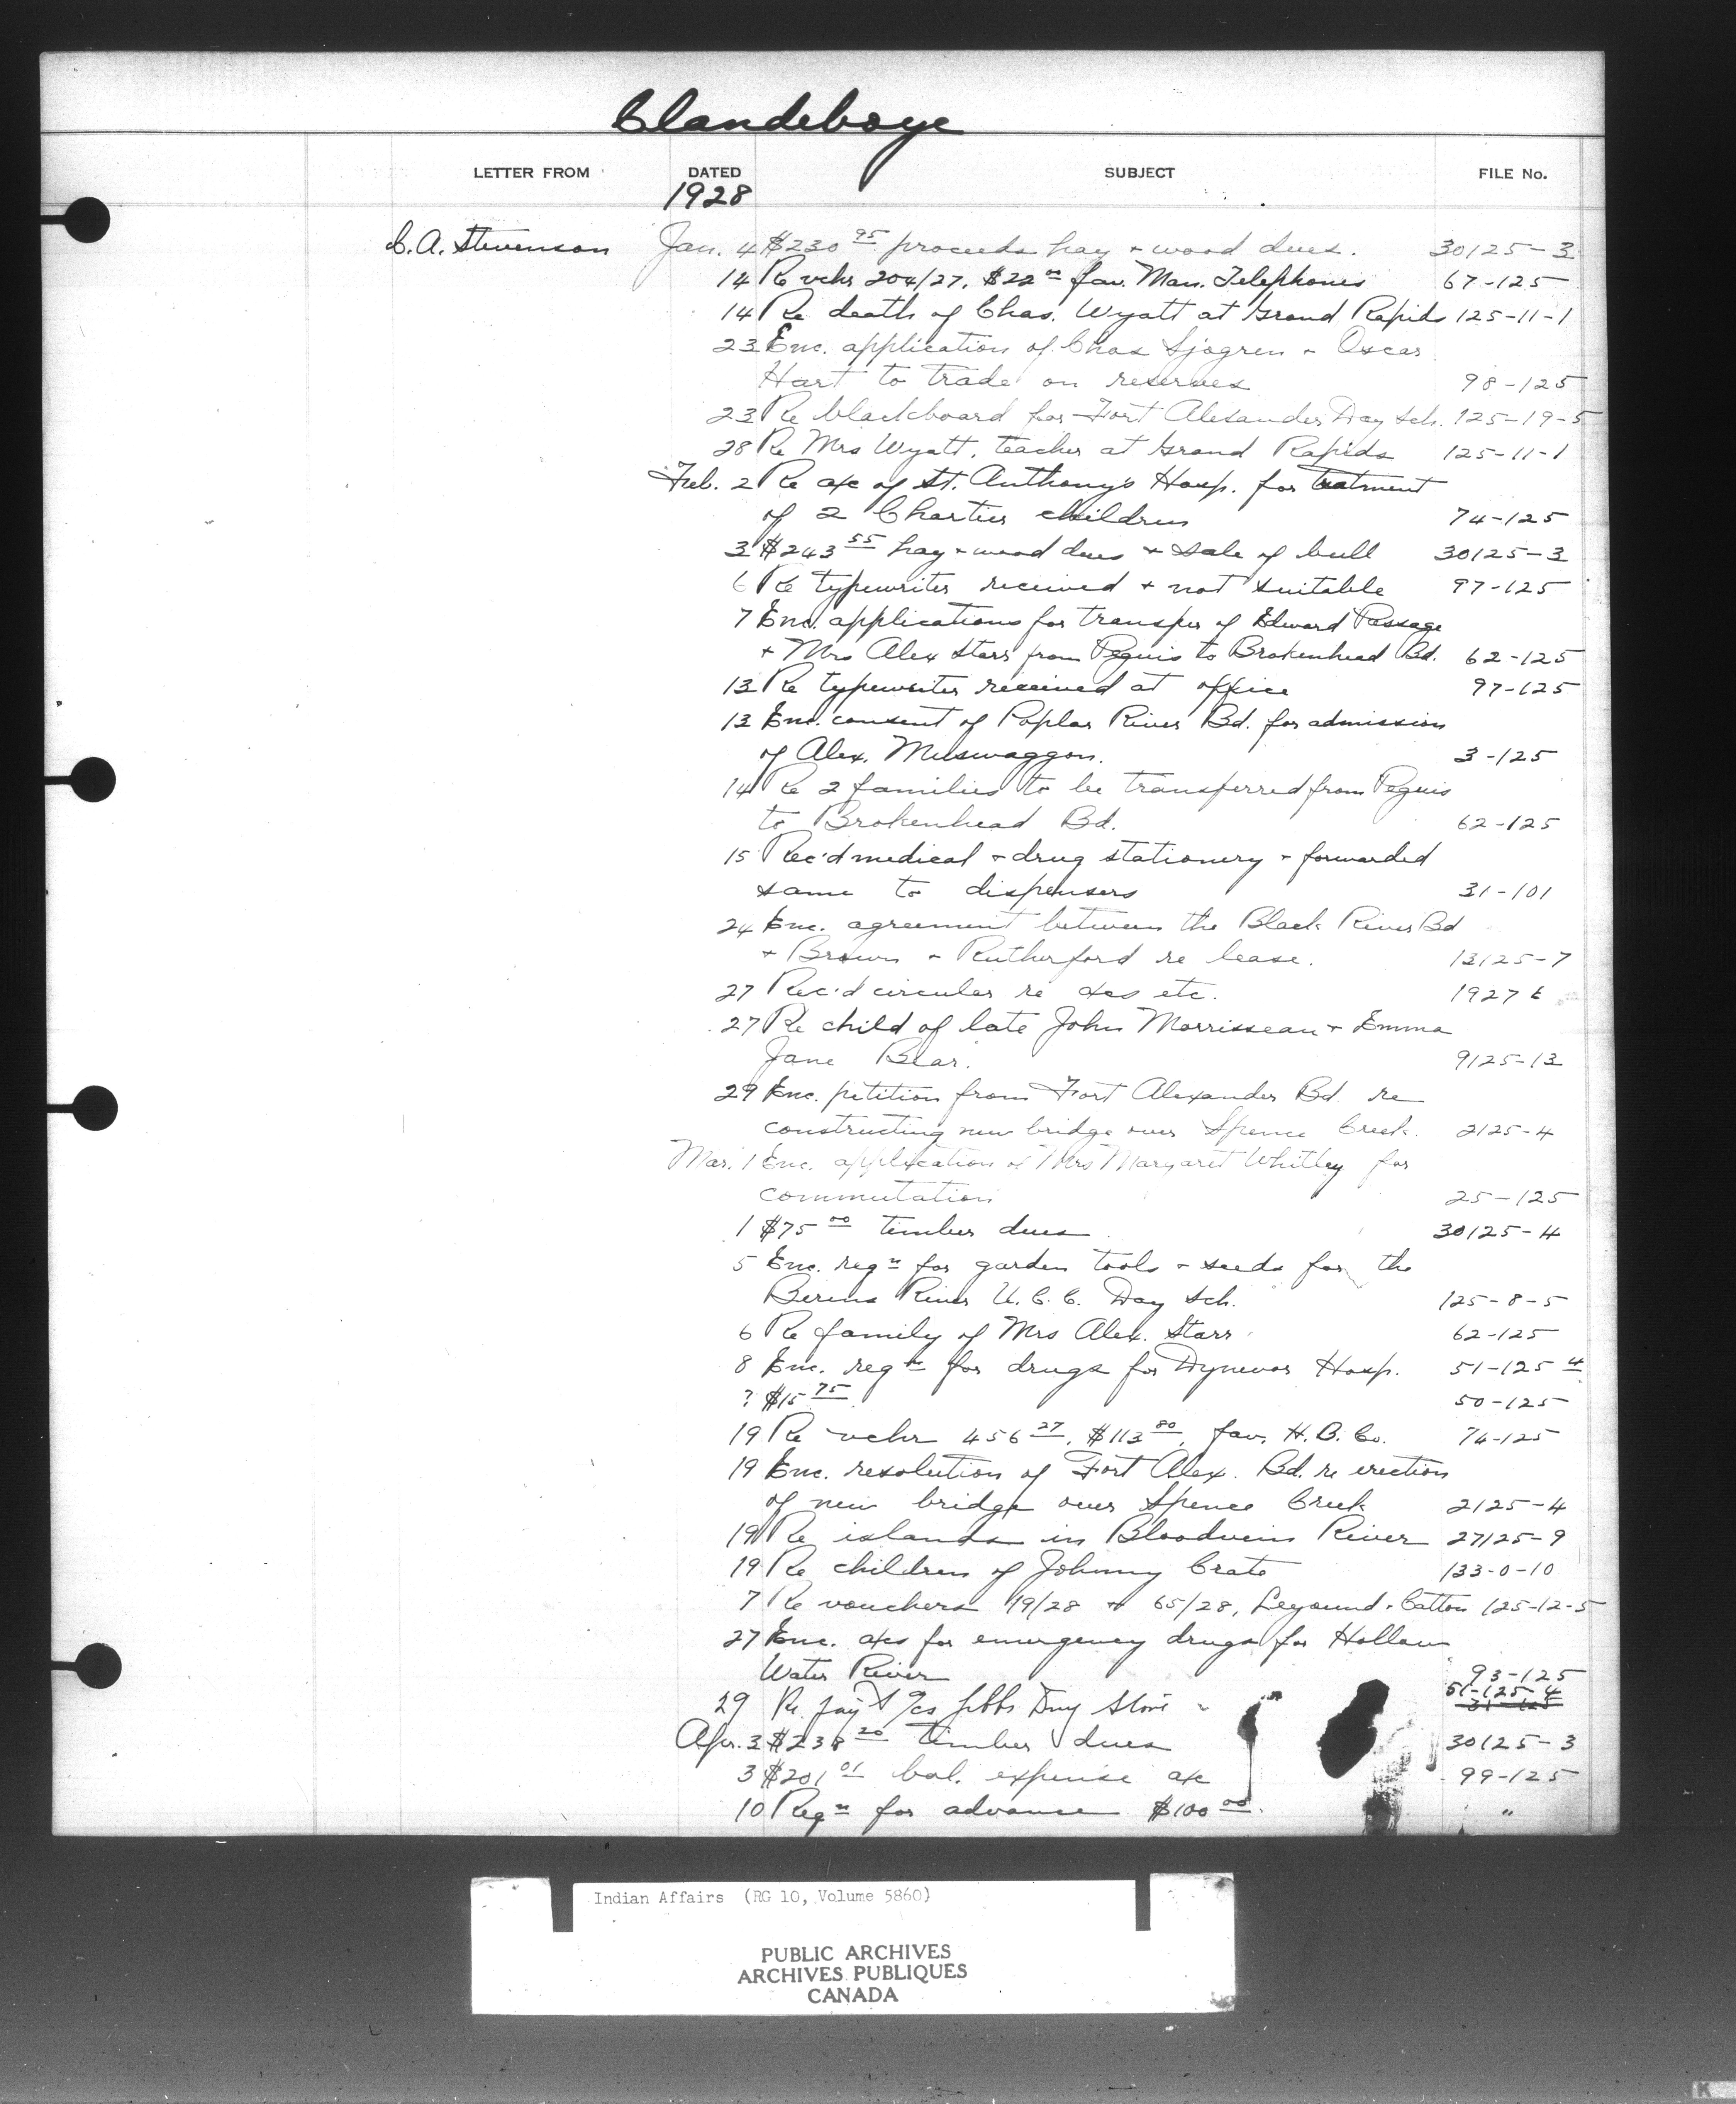 Clandeboye
LETTER FROM DATED SUBJECT FILE No.
1928
C. A. Stevenson Jan. 4 $230 95 proceeds hay + wood dues. 30125-3
14 Re vchr 204/27, $22 00 fav. Man. Telephones 67-125
14 Re death of Chas. Wyatt at Grand Rapids 125-11-1
23 Enc. application of Chas Sjogren + Oscar
Hart to trade on reserves 98-125
23 Re blackboard for Fort Alexander Day Sch. 125-19-5
28 Re Mrs Wyatt, teacher at Grand Rapids 125-11-1
Feb. 2 Re a/c of St. Anthony's Hosp. for treatment
of 2 Chartier children 74-125
3 $243 55 hay + wood dues + sale of bull 30125-3
6 Re typewriter received + not suitable 97-125
7 Enc. applications for transfer of Edward Passage
+ Mrs Alex Starr from Peguis to Brokenhead Bd. 62-125
13 Re typewriter received at office 97-125
13 Enc. consent of Poplar River Bd. for admission
of Alex. Muswaggon. 3-125
14 Re 2 families to be transferred from Peguis
to Brokenhead Bd. 62-125
15 Rec'd medical + drug stationery + forwarded
same to dispensers 31-101
24 Enc. agreement between the Black River Bd
+ Brown + Rutherford re lease. 13125-7
27 Rec'd circular re a/cs etc. 1927 E
27 Re child of late John Morrisseau + Emma
Jane Bear. 9125-13
29 Enc. petition from Fort Alexander Bd. re
constructing new bridge over Spence Creek. 2125-4
Mar. 1 Enc. application of Mrs Margaret Whitley for
commutation 25-125
1 $75 00 timber dues 30125-4
5 Enc. reqn for garden tools + seeds for the
Berens River U. C. C. Day Sch. 125-8-5
6 Re family of Mrs Alex. Starr 62-125
8 Enc. reqn for drugs for Dynevor Hosp. 51-125 4
? $15 75 50-125
19 Re vchr 456 27, $113 80, fav. H. B. Co. 74-125
19 Enc. resolution of Fort Alex. Bd. re erection
of new bridge over Spence Creek 2125-4
19 Re islands in Bloodvein River 27125-9
19 Re children of Johnny Crate 133-0-10
7 Re vouchers 19/28 + 65/28, + Catton 125-12-5
27 Enc. a/cs for emergency drugs for Hollow
Water River 93-125
29 Re pay't a/cs Gibbs Drug Store 51-125-4
Apr. 3 $238 20 timber dues 30125-3
3 $201 01 bal. expense a/c 99-125
10 Reqn for advance $100 00. "
Indian Affairs (RG 10, Volume 5860)
PUBLIC ARCHIVES
ARCHIVES PUBLIQUES
CANADA
K